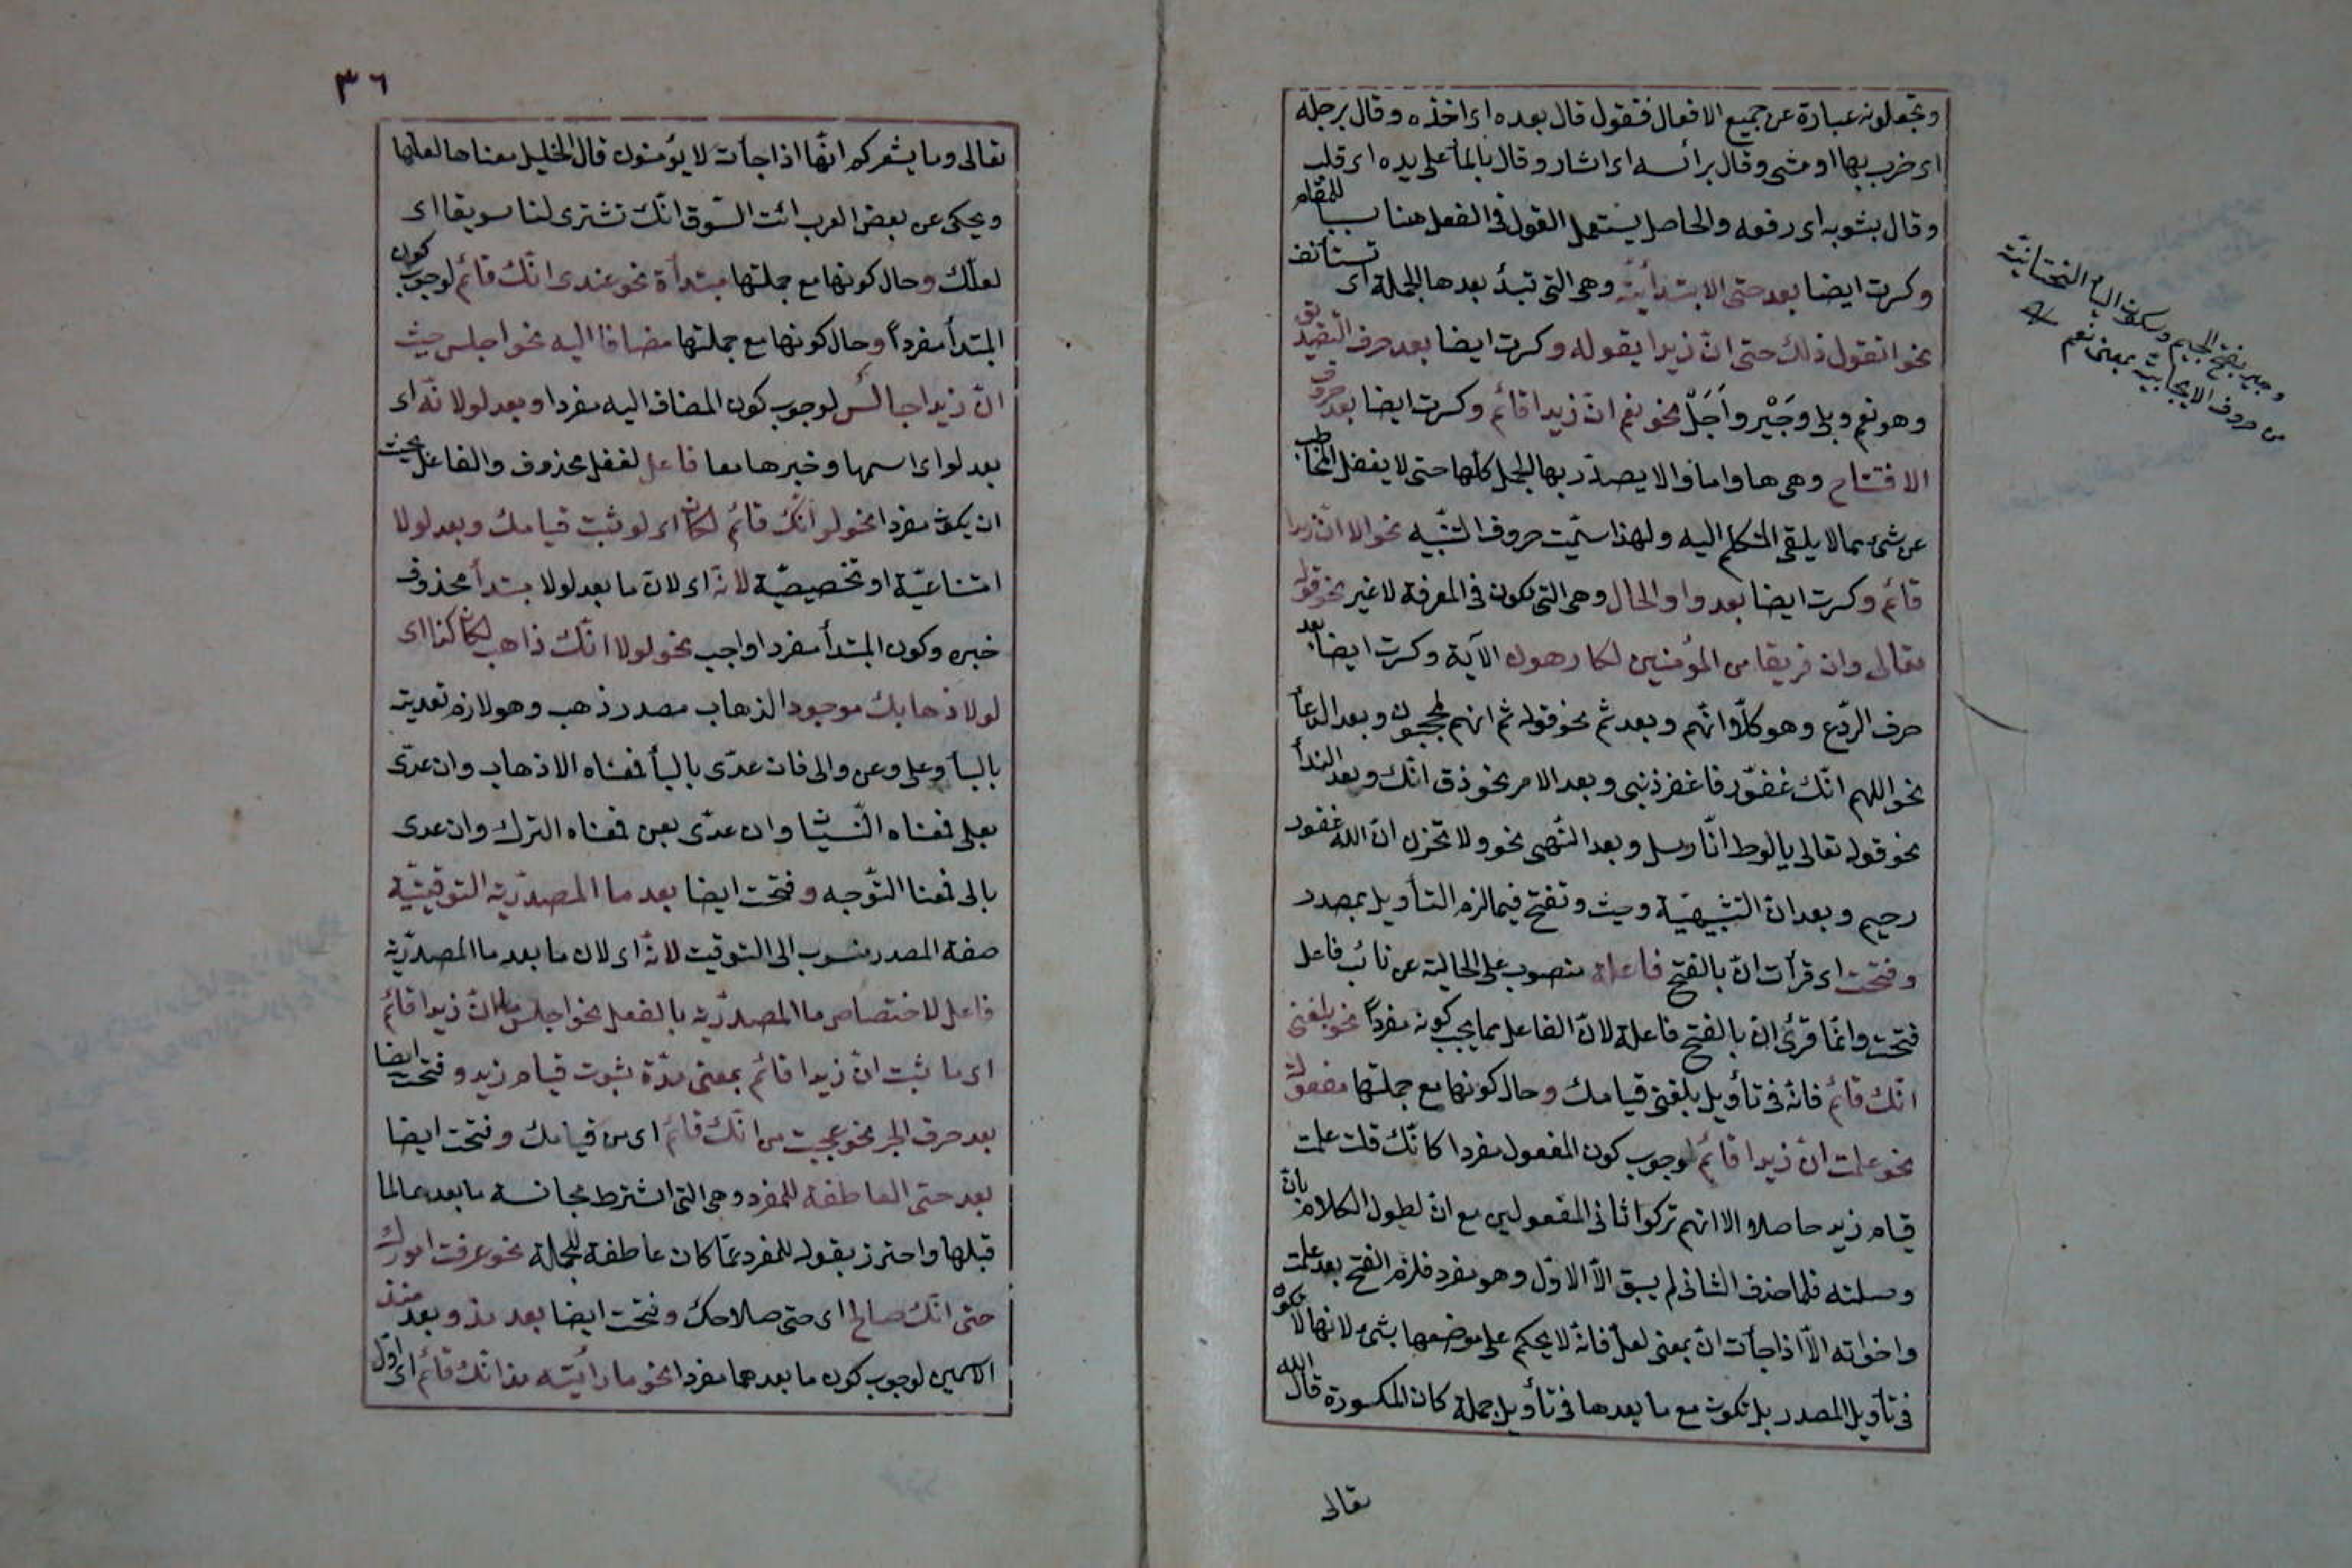 وتجعلونه عبارة عن جميع الافعال فنقول قال بعده اى اخذه وقال برجله
اى ضرب بها او مشى وقال برأسه اى اشار وقال بالمأ على يده اى قلب
وقال بثوبه اى رفعه والحاصل يستعمل القول فى الفعل مناسبا للمقام
وكسرت ايضا بعد حتى الابتدأيّة وهى التى تبدأ بعدها الجملة اى تستأنف
نحو اتقول ذلك حتى انّ زيدا يقوله وكسرت ايضا بعد حرف التّصديق
وهو نعم وبلى وجَيْر وأَجَلْ نحو نعم انّ زيدا قائم وكسرت ايضا بعد حروف
الافتتاح وهى ها واما والا يصدّر بها الجمل كلّها حتى لا يغفل المخاطب
عن شئ مما لا يلقى المتكلم اليه ولهذا سمّيت حروف التنبيه نحو الا انّ زيدا
قائم وكسرت ايضا بعد واو الحال وهى التى تكون فى المعرفة لا غير نحو قوله
تعالى وان فريقا من المؤمنين لكارهون الآية وكسرت ايضا بعد
حرف الرّدع وهو كلّا انّهم وبعد ثم نحو قوله ثم انهم لمحجوبون وبعد الدعأ
نحو اللهم انّك غفوّر فاغفر ذنبى وبعد الامر نحو ذق انّك وبعد الندأ
نحو قوله تعالى يا لوط انّا رسل وبعد النّهى نحو ولا تحزن انّ الله غفور
رحيم وبعد انّ التشبيهيّة وحيث وتفتح فيما لزم التأويل بمصدر
وفتحت اى قرأت انّ بالفتح فاعلة منصوب على الحالية عن نائب فاعل
فتحت وانّما قرئ انّ بالفتح فاعلة لانّ الفاعل مما يجب كونه مفرداً نحو بلغنى
انّك قائم فانّه فى تأويل بلغنى قيامك وحال كونها مع جملتها مفعولة
نحو علمت انّ زيدا قائم لوجوب كون المفعول مفردا كانّك قلت علمت
قيام زيد حاصلا الا انهم تركوا ثانى المفعولين مع انّ لطول الكلام بانّ
وصلته فلما حذف الثانى لم يبق الّا الاوّل وهو مفرد فلزم الفتح بعد علمت
واخواته الّا اذا جأت انّ بمعنى لعلّ فانّه لا يحكم على موضعها بشئ لانها لا تكون
فى تأويل المصدر بل تكون مع ما بعدها فى تأويل جملة كان المكسورة قال الله
تعالى
وجير بفتح الجيم وسكون اليأ التحتانيّة
من حروف الايجابيّة بمعنى نعم
٣٦
تعالى وما يشعركم انّها اذا جأت لا يؤمنون قال الخليل معناها لعلّها
ويحكى عن بعض العرب ائت السّوق انّك تشترى لنا سويقا اى
لعلّك وحال كونها مع جملتها مبتدأة نحو عندى انّك قائم لوجوب كون
المبتدأ مفرداً وحال كونها مع جملتها مضافا اليه نحو اجلس حيث
انّ زيدا جالس لوجوب كون المضاف اليه مفردا وبعد لو لانّه اى
بعد لو اى اسمها وخبرها معا فاعل لفعل محذوف والفاعل يجب
ان يكون مفردا نحو لو انّك قائم لكان اى لو ثبت قيامك وبعد لولا
امتناعيّة او تخصيصيّة لانّه اى لانّ ما بعد لولا مبتدأ محذوف
خبره وكون المبتدأ مفردا واجب نحو لولا انّك ذاهب لكان كذا اى
لولا ذهابك موجود الذهاب مصدر ذهب وهو لازم تعديته
بالبأ وعلى وعن والى فان عدّى بالبأ فمعناه الاذهاب وان عدّى
بعلى فمعناه النّسيان وان عدّى بعن فمعناه الترك وان عدى
بالى فمعنا التّوجه وفتحت ايضا بعد ما المصدريّة التوقيتيّة
صفة المصدر منسوب الى التوقيت لانّه اى لان ما بعد ما المصدريّة
فاعل لاختصاص ما المصدريّة بالفعل نحو اجلس ما انّ زيدا قائم
اى ما ثبت انّ زيدا قائم بمعنى مدّة ثبوت قيام زيد وفتحت ايضا
بعد حرف الجر نحو عجبت من انّك قائم اى من قيامك وفتحت ايضا
بعد حتى العاطفة للمفرد وهى التى اشترط مجانسة ما بعدها لما
قبلها واحترز بقوله للمفرد عمّا كان عاطفة للجملة نحو عرفت امورك
حتى انّك صالح اى حتى صلاحك وفتحت ايضا بعد مذ وبعد منذ
الاسمين لوجوب كون ما بعدهما مفردا نحو ما رأيته مذ انّك قائم اى اوّل